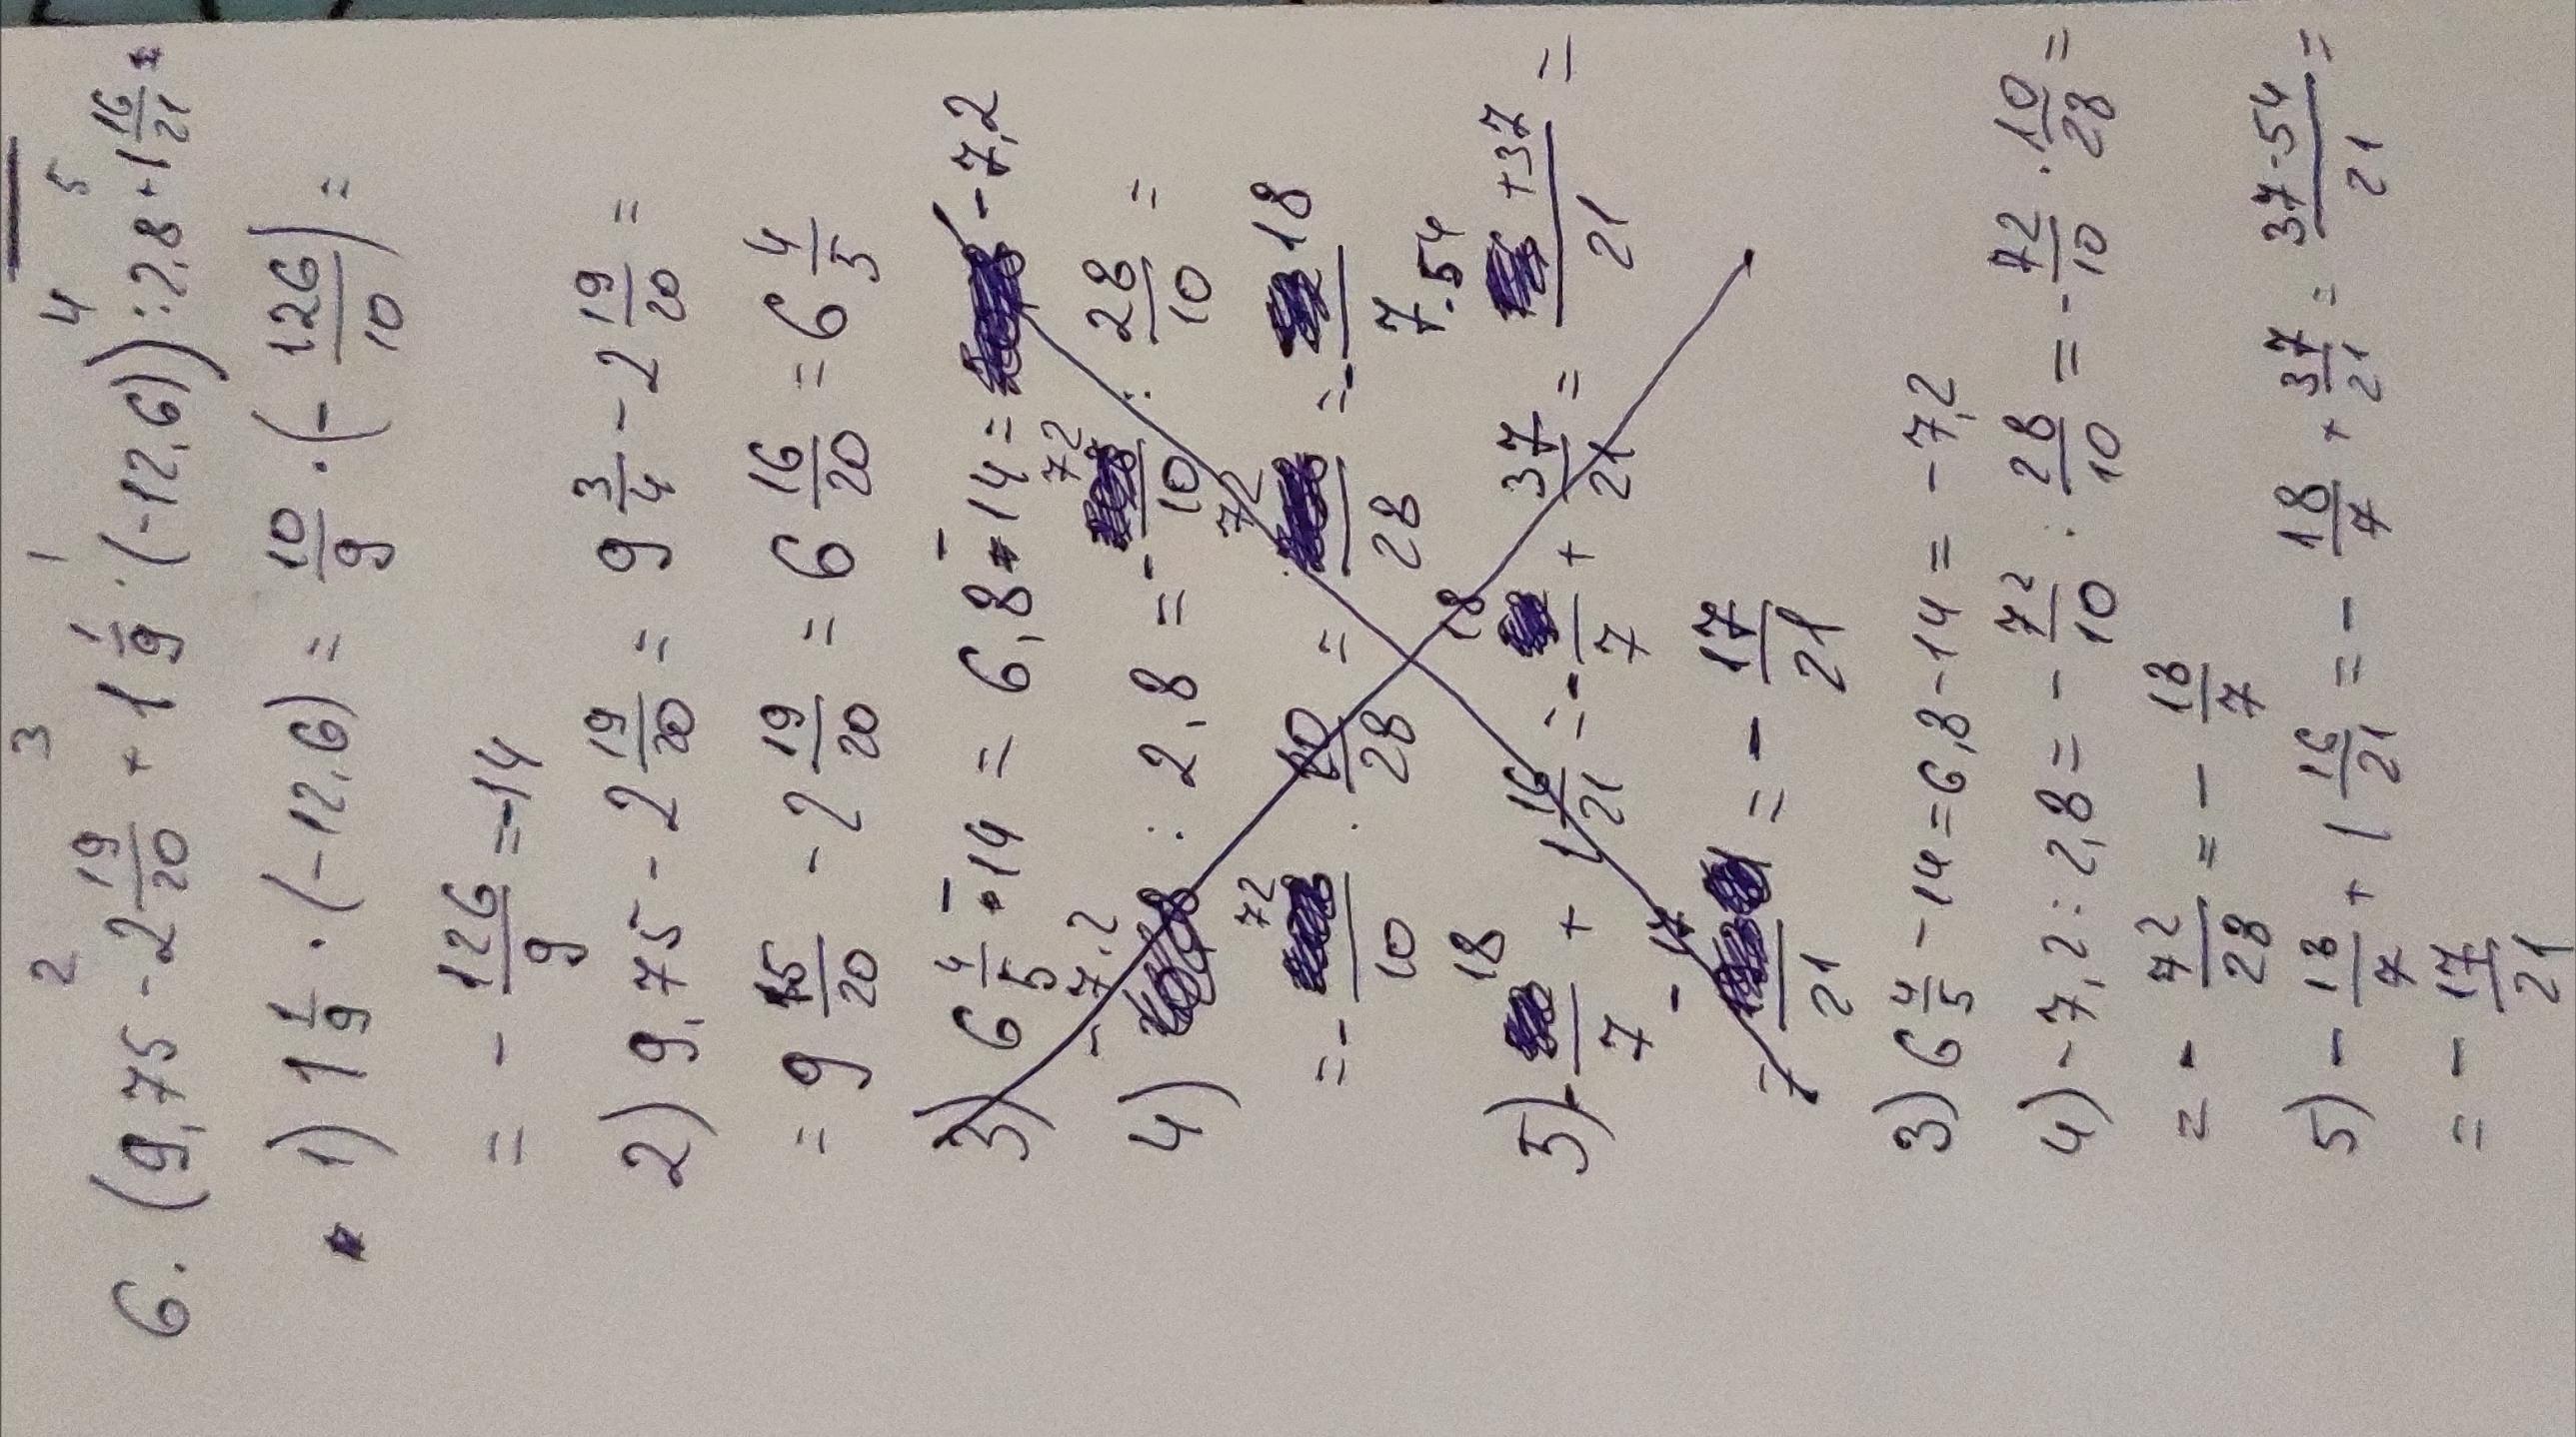 2 3 1 4 5
6. (9,75 - 2 19/20 + 1 1/9 · (-12,6)) : 2,8 + 1 16/21 =
1) 1 1/9 · (-12,6) = 10/9 · (- 126/10) =
= - 126/9 = -14
2) 9,75 - 2 19/20 = 9 3/4 - 2 19/20 =
= 9 15/20 - 2 19/20 = 6 16/20 = 6 4/5
3) 6 4/5 - 14 = 6,8 - 14 = -7,2
4) -7,2 : 2,8 = - 72/10 : 28/10 =
= - 72/10 · 10/28 = 72/28 = - 18/7
5) - 18/7 + 1 16/21 = - 18/7 + 37/21 = -54+37/21 =
-17/21 = - 17/21
3) 6 4/5 - 14 = 6,8 - 14 = -7,2
4) -7,2 : 2,8 = - 72/10 : 28/10 = - 72/10 · 10/28 =
= - 72/28 = - 18/7
5) - 18/7 + 1 16/21 = - 18/7 + 37/21 = 37-54/21 =
= - 17/21